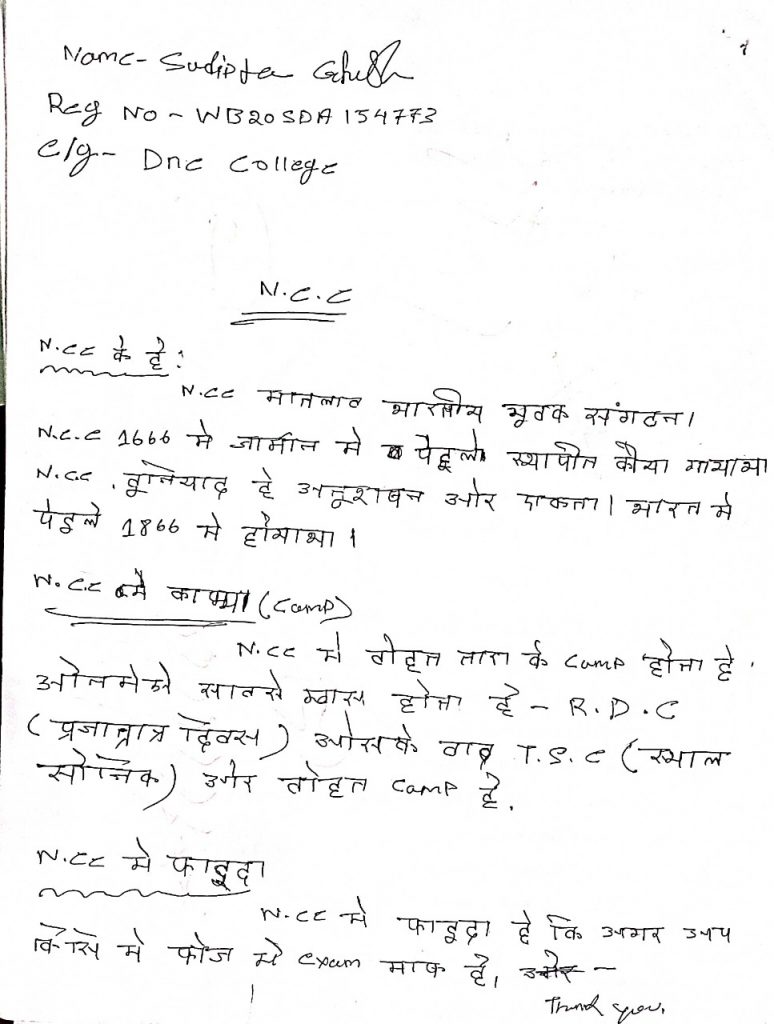 Name - Sudipta Ghosh
Reg No - WB20SDA154773
C/g - Dnc College
N.C.C
N.cc के हे :
N.cc मातलाव भारतीय भूवक संगठन।
N.C.C 1666 मे जार्मान मे पेहूले स्थापीत कीया गायाथा
N.cc बूनियाद हे अनूशाषन ओर एकता। भारत मे
पेहले 1866 मे होयाथा।
N.C.C मे काम्प (Camp)
N.cc मे वोहत तारा के camp होता हे.
ओनमेसे सावसे खास होता हे - R.D.C
(प्रजातात्र दिवस) ओसके वाद T.S.C (स्थाल
सोनिक) ओर वोहत camp हे.
N.cc मे फाइदा
N.cc मे फाइदा हे कि अगर आप
किसि मे फोज मे exam माफ हे, ओर -
Thank you.